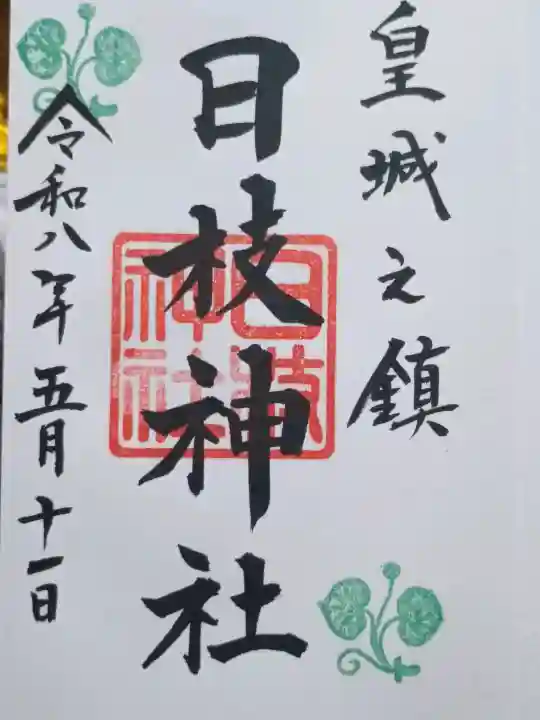 皇城之鎮
日枝神社
日枝神社
令和八年五月十一日